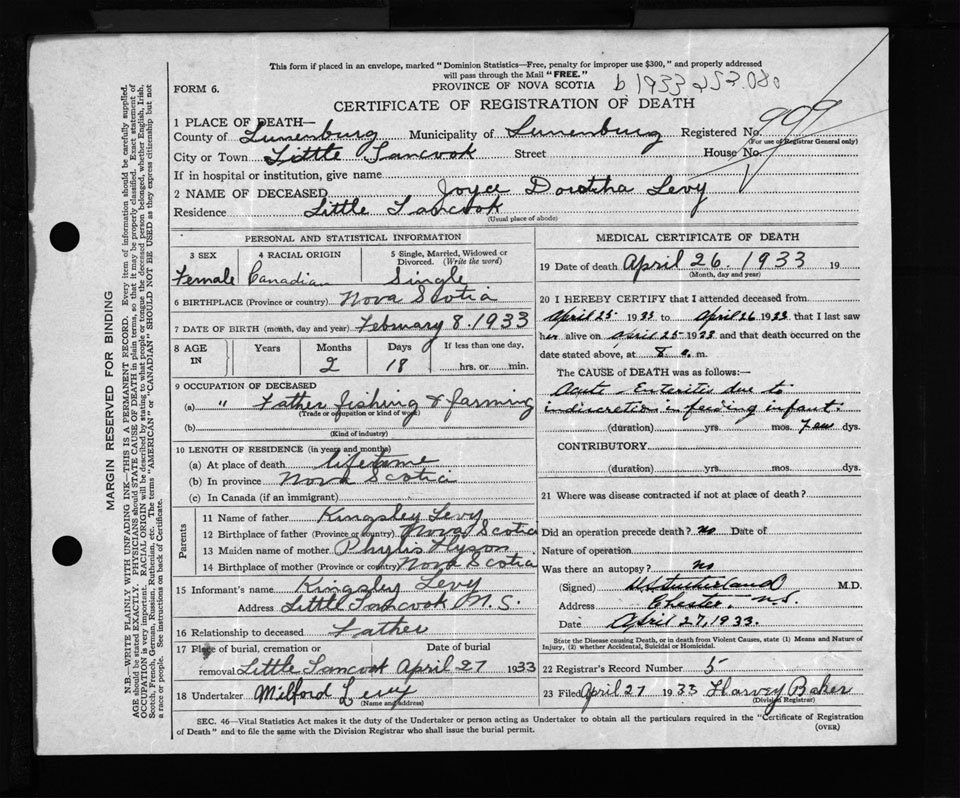 This form if placed in an envelope, marked "Dominion Statistics—Free, penalty for improper use $300," and properly addressed
will pass through the Mail "FREE."
FORM 6.
PROVINCE OF NOVA SCOTIA
b 1933
CERTIFICATE OF REGISTRATION OF DEATH
909
1 PLACE OF DEATH—
County of Lunenburg Municipality of Lunenburg Registered No.
(For use of Registrar General only)
City or Town Little Tancook Street House No.
If in hospital or institution, give name
2 NAME OF DECEASED Joyce Dorotha Levy
Residence Little Tancook
(Usual place of abode)
MARGIN RESERVED FOR BINDING
N.B.—WRITE PLAINLY WITH UNFADING INK—THIS IS A PERMANENT RECORD. Every item of information should be carefully supplied.
AGE should be stated EXACTLY. PHYSICIANS should STATE CAUSE OF DEATH in plain terms, so that it may be properly classified. Exact statement of
OCCUPATION is very important. RACIAL ORIGIN will be described by stating to what people or tongue the deceased person belonged, whether English, Irish,
Scotch, French, German, Russian, Ruthenian, etc. The terms "AMERICAN" or "CANADIAN" SHOULD NOT BE USED as they express citizenship but not
a race or people. See instructions on back of Certificate.
PERSONAL AND STATISTICAL INFORMATION
3 SEX 4 RACIAL ORIGIN 5 Single, Married, Widowed or
Divorced. (Write the word)
Female Canadian Single
6 BIRTHPLACE (Province or country) Nova Scotia
7 DATE OF BIRTH (month, day and year) February 8. 1933
8 AGE IN Years Months Days If less than one day,
2 18 hrs. or min.
9 OCCUPATION OF DECEASED
(a) " Father fishing & farming
(Trade or occupation or kind of work)
(b)
(Kind of industry)
10 LENGTH OF RESIDENCE (in years and months)
(a) At place of death lifetime
(b) In province Nova Scotia
(c) In Canada (if an immigrant)
Parents
11 Name of father Kingsley Levy
12 Birthplace of father (Province or country) Nova Scotia
13 Maiden name of mother Phylis
14 Birthplace of mother (Province or country) Nova Scotia
15 Informant's name Kingsley Levy
Address Little Tancook N.S.
16 Relationship to deceased Father
17 Place of burial, cremation or Date of burial
removal Little Tancook April 27 1933
18 Undertaker Milford Levy
(Name and address)
MEDICAL CERTIFICATE OF DEATH
19 Date of death April 26. 1933 19
(Month, day and year)
20 I HEREBY CERTIFY that I attended deceased from
April 25 1933 to April 26 1933 that I last saw
her alive on April 25 1933 and that death occurred on the
date stated above, at 8 a. m.
The CAUSE of DEATH was as follows:—
Acute Enteritis due to
indiscretion in feeding infant.
(duration) yrs. mos. few dys.
CONTRIBUTORY
(duration) yrs. mos. dys.
21 Where was disease contracted if not at place of death?
Did an operation precede death? no Date of
Nature of operation
Was there an autopsy? no
(Signed) Sutherland M.D.
Address Chester. N.S.
Date April 27, 1933.
State the Disease causing Death, or in death from Violent Causes, state (1) Means and Nature of
Injury, (2) whether Accidental, Suicidal or Homicidal.
22 Registrar's Record Number 5
23 Filed April 27 1933 Harvey Baker
(Division Registrar)
SEC. 46—Vital Statistics Act makes it the duty of the Undertaker or person acting as Undertaker to obtain all the particulars required in the "Certificate of Registration
of Death" and to file the same with the Division Registrar who shall issue the burial permit.
(OVER)